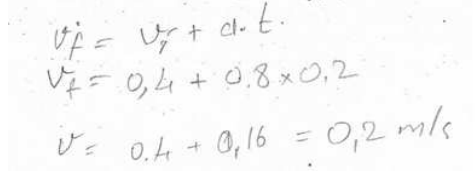 vf = vi + a.t.
Vf = 0,4 + 0.8x0.2
v = 0.4 + 0,16 = 0,2 m/s